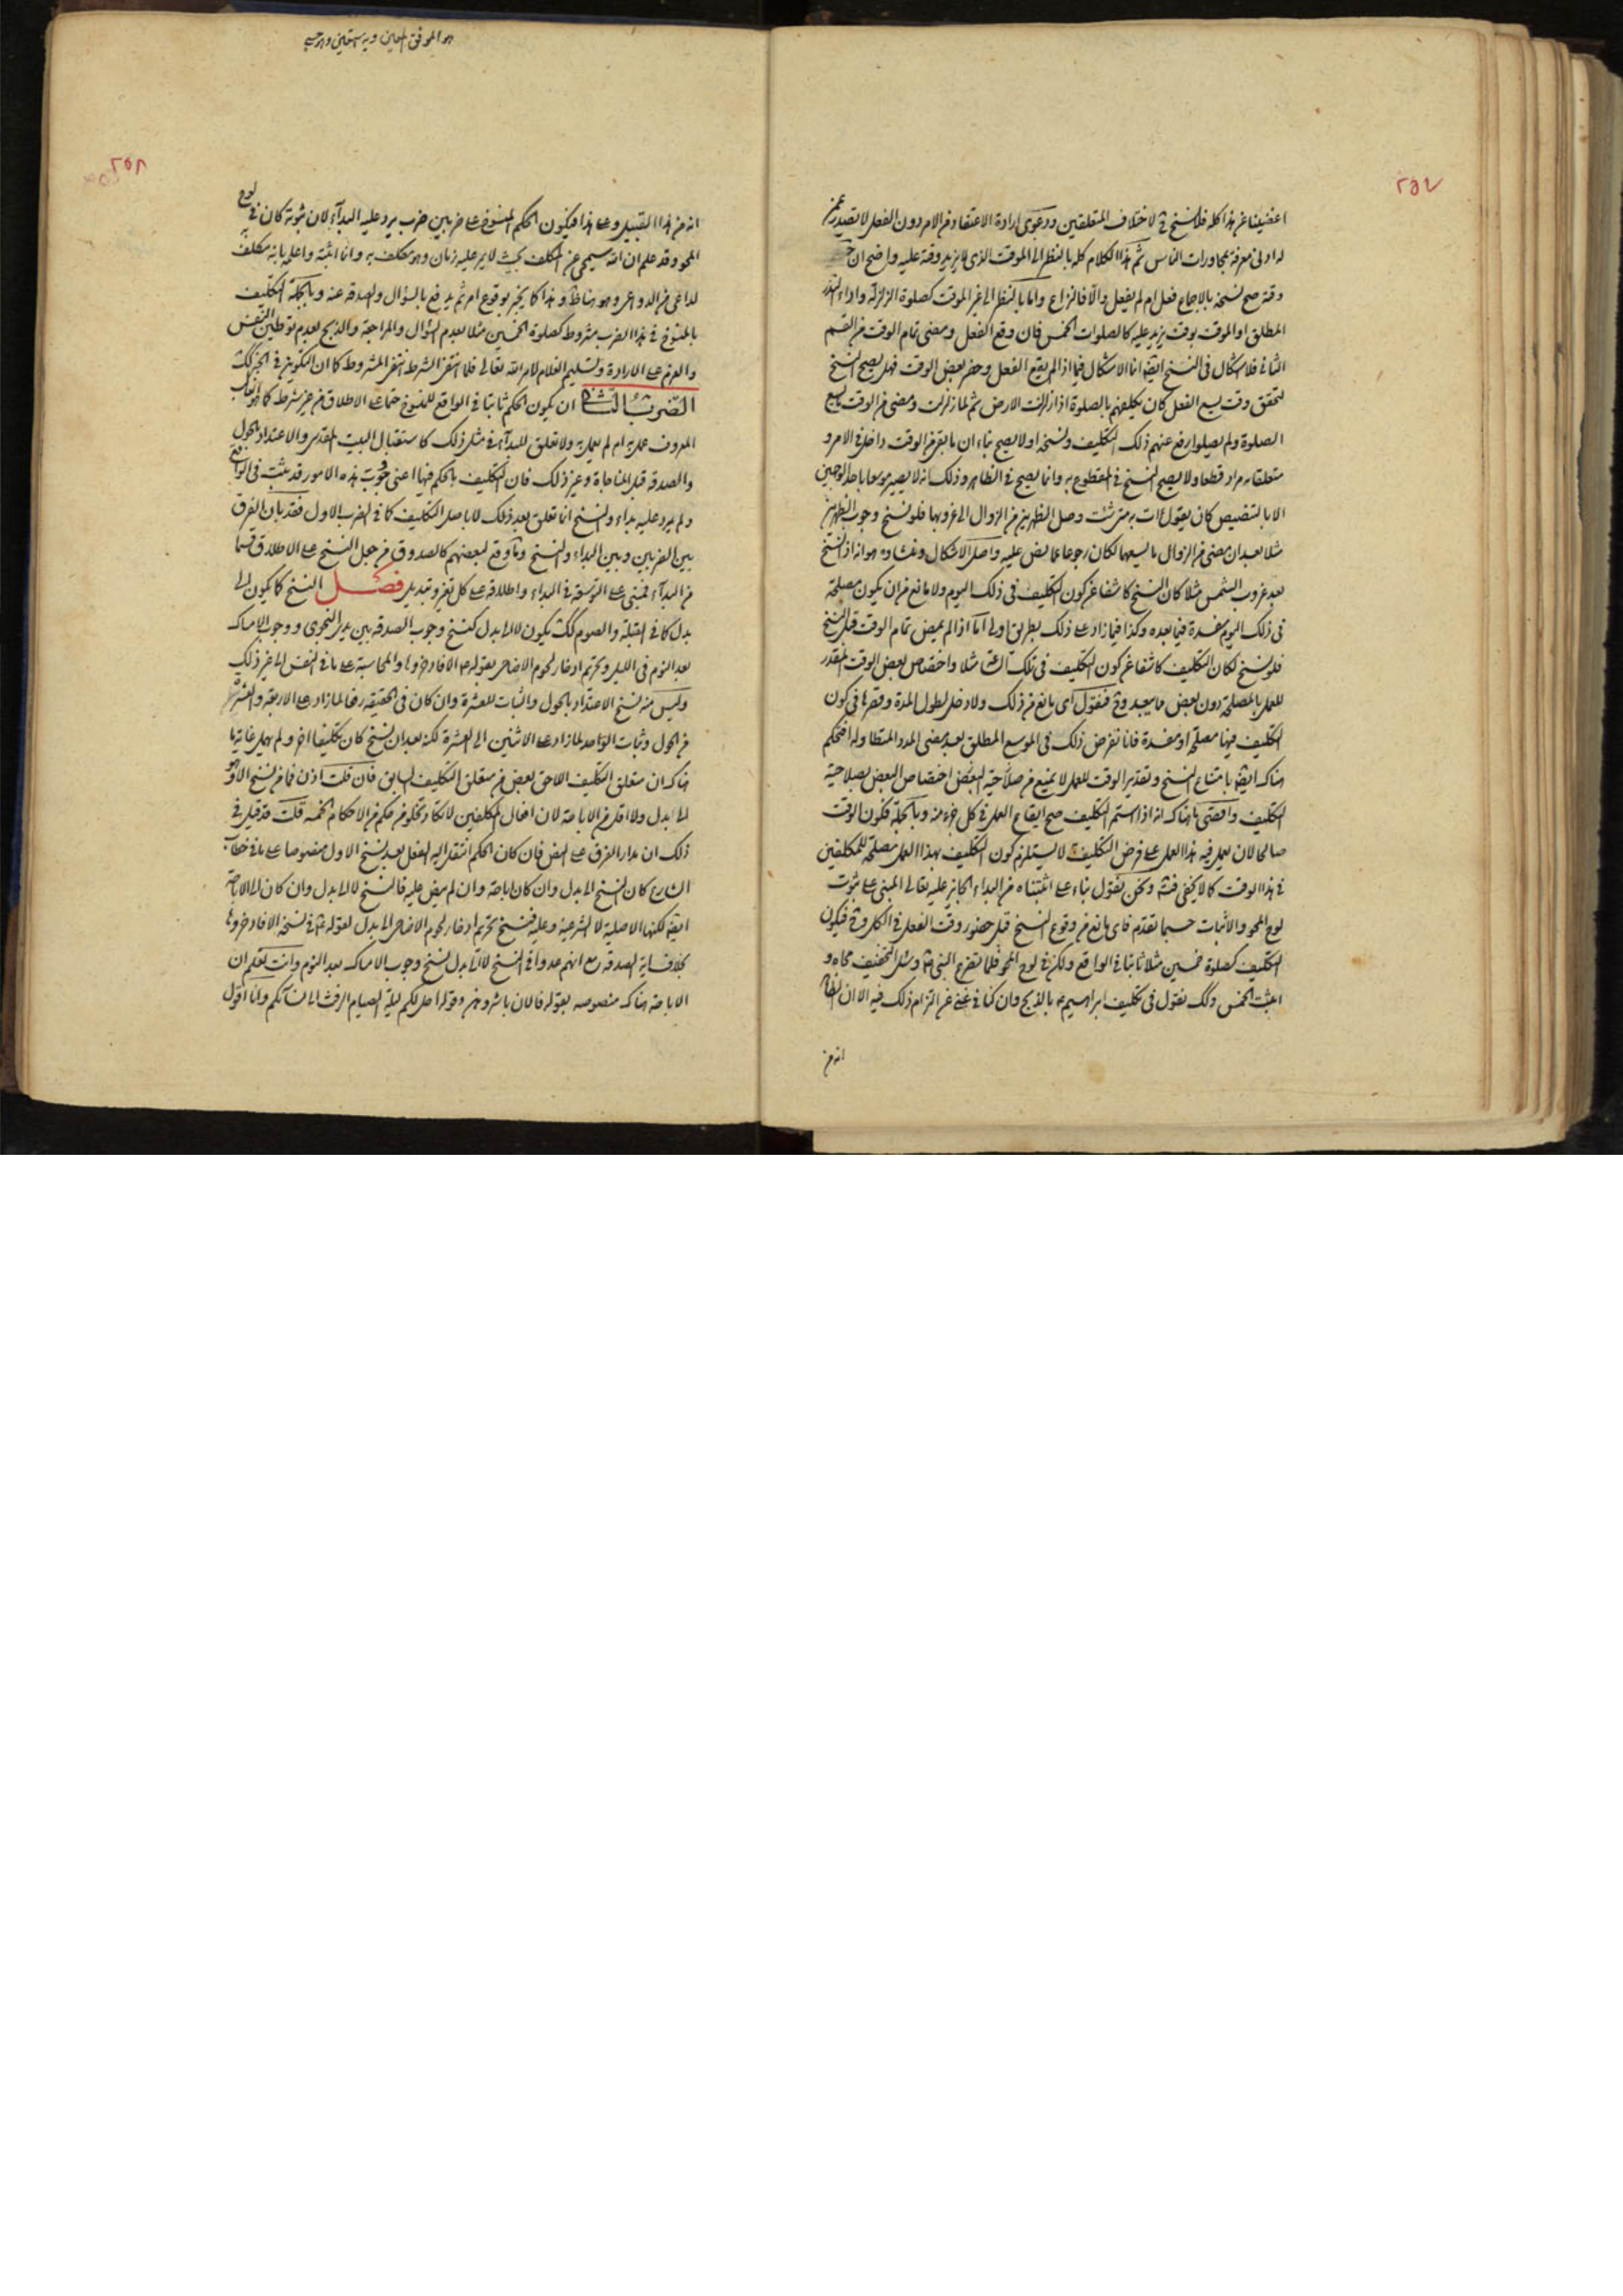 ٢٥٧
اغضينا عن هذا كله فلا نسخ لاختلاف المتعلقين ودعوى ارادة الاعتقاد من الامر دون الفعل لا يصدر عمن
له ادنى معرفة بمحاورات الناس ثم هذا الكلام كله بالنظر الى الموقت الذى لا يزيد وقته عليه واضح ان
وقته صح نسخه بالاجماع فعل ام لم يفعل والا فالنزاع واما بالنظر الى غير الموقت كصلوة الزلزلة واداء النذر
المطلق او الموقت بوقت يزيد عليه كالصلوات الخمس فان وقع الفعل ومضى تمام الوقت من القسم
الثانى فلا اشكال فى النسخ ايضا انما الاشكال فيما اذا لم يقع الفعل وحضر بعض الوقت فهل يصح النسخ
لتحقق وقت يسع الفعل كان يكلفهم بالصلوة اذا زلزلت الارض ثم لما زلزلت ومضى من الوقت ما يسع
الصلوة ولم يصلوا رفع عنهم ذلك التكليف ونسخه اولا يصح بناء ان ما بقى من الوقت داخل فى الامر و
متعلقا به مراد قطعا ولا يصح النسخ فى المقطوع به وانما يصح فى الظاهر وذلك انه لا يصير موسعا باحد الوجهين
الا بالتنصيص كان يقول ائت به متى شئت وصل الظهرين من الزوال الى غروبها فلو نسخ وجوب الظهرين
مثلا بعد ان مضى من الزوال ما يسعهما لكان رجوعا عما نص عليه واصل الاشكال ومنشاؤه هو انه اذا نسخ
بعد غروب الشمس مثلا كان النسخ كاشفا عن كون التكليف فى ذلك اليوم ولا مانع من ان يكون مصلحة
فى ذلك اليوم مفسدة فيما بعده وكذا فيما زاد على ذلك بطريق اولى اما اذا لم يمض تمام الوقت قبل النسخ
فلو نسخ لكان التكليف كاشفا عن كون التكليف فى تلك الساعة مثلا واختصاص بعض الوقت المقدر
للعمل بالمصلحة دون بعض مما يبعد وح فنقول اى مانع من ذلك ولا دخل لطول المدة وقصرها فى كون
التكليف فيها مصلحة او مفسدة فانا نفرض ذلك فى الموسع المطلق بعد مضى المدد المتطاولة افتحكم
هناك ايضا بامتناع النسخ وتقدير الوقت للعمل لا يمنع من صلاحية البعض اختصاص البعض بصلاحية
التكليف واقصى ما هناك انه اذا استمر التكليف صح ايقاع العمل فى كل جزء منه وبالجملة فكون الوقت
صالحا لان يعمل فيه هذا العمل على فرض التكليف لا يستلزم كون التكليف بهذا العمل مصلحة للمكلفين
فى هذا الوقت كما لا يخفى ونحن نقول بناء على اثبتناه من البداء الجائز عليه تعالى المبنى على ثبوت
لوح المحو والاثبات حسبما تقدم فاى مانع من وقوع النسخ قبل حضور وقت الفعل فى الكل وح فيكون
التكليف كصلوة خمسين مثلا ثابتا فى الواقع ولكن فى لوح المحو فلما تضرع النبى وسئل التخفيف محاه و
اثبت الخمس وكك نقول فى تكليف ابراهيم ع بالذبح وان كنا فى غنى عن التزام ذلك فيه الا ان الظاهر
انه من
هو الموفق المعين وبه نستعين
٢٥٨
انه من هذا القبيل وعلى هذا فيكون الحكم المنسوخ على ضربين ضرب يرد عليه البداء لان ثبوته كان فى لوح
المحو وقد علم ان الله سيمحى عن المكلف بحيث لا يمر عليه زمان وهو مكلف به وانما اثبته واعلمه بانه مكلف به
لداعى من الدواعى وهو هذا كما يخبر بوقوع امر ثم يدفع بالسؤال والصدقة عنه وبالجملة التكليف
بالمنسوخ فى هذا الضرب مشروط كصلوة الخمسين مثلا بعدم السؤال والمراجعة والذبح بعدم توطين النفس
والعزم على الارادة وتسليم الغلام لامر الله تعالى فلما انتفى الشرط انتفى المشروط كما ان التكوين فى الخبر كك
الضرب الثانى ان يكون الحكم ثابتا فى الواقع للمنسوخ حتما على الاطلاق من غير شرط كما هو الغالب
المعروف عمل به ام لم يعمل به ولا تعلق للبداء فى مثل ذلك كاستقبال البيت المقدس والاعتداد بالحول
والصدقة قبل المناجاة وغير ذلك فان التكليف بالحكم فيها اعنى وجوب هذه الامور قد يثبت فى الواقع
ولم يرد عليه بداء والنسخ انما تعلق بعد ذلك لا باصل التكليف كما فى الضرب الاول فقد بان الفرق
بين الضربين وبين البداء والنسخ وما وقع لبعضهم كالصدوق من جعل النسخ على الاطلاق قسما
من البداء فمبنى على التوسعة فى البداء واطلاقه على كل تغير وتبديل فصل النسخ كما يكون الى
بدل كما فى القبلة والصوم كك يكون لا الى بدل كنسخ وجوب الصدقة بين يدى النجوى ووجوب الامساك
بعد النوم فى الليل وتحريم ادخار لحوم الاضاحى بقوله ص الا فادخروها والمحاسبة على ما فى النفس الى غير ذلك
وليس منه نسخ الاعتداد بالحول والثبات للعشرة وان كان فى الحقيقة رفعا لما زاد على الاربعة والعشر
من الحول وثبات الواحد لما زاد على الاثنين الى العشرة لكنه بعد ان نسخ كان تكليفا اخر ولم يهمل غاية ما
هناك ان متعلق التكليف اللاحق بعض من متعلق التكليف السابق فان قلت اذن فما من نسخ الا وهو
الى بدل ولا اقل من الاباحة لان افعال المكلفين لا تكاد تخلو من حكم من الاحكام الخمسة قلت قد قيل فى
ذلك ان مدار الفرق على النص فان كان الحكم انتقل اليه الفعل بعد نسخ الاول منصوصا عليه فى خطاب
الشارع كان النسخ الى بدل وان كان اباحة وان لم ينص عليه فالنسخ لا الى بدل وان كان الى الاباحة
ايضا لكنها الاصلية لا الشرعية وعليه فنسخ تحريم ادخار لحوم الاضاحى الى بدل لقوله فى نسخه الا فادخروها
بخلاف اية الصدقة مع انهم عدوا فى النسخ لا الى بدل نسخ وجوب الامساك بعد النوم وانت تعلم ان
الاباحة هناك منصوصه بقوله فالان باشروهن وقوله احل لكم ليلة الصيام الرفث الى نسائكم وانا اقول